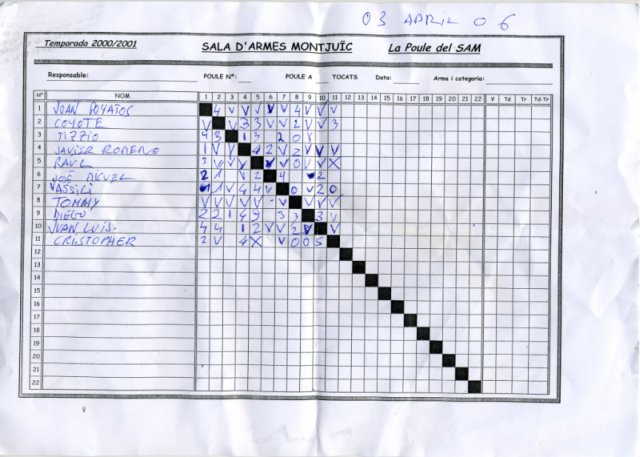 03 APRIL 06
Temporada 2000/2001 SALA D'ARMES MONTJUÏC La Poule del SAM
Responsable: POULE Nº: POULE A TOCATS Data: Arma i categoria:
Nº NOM 1 2 3 4 5 6 7 8 9 10 11 12 13 14 15 16 17 18 19 20 21 22 V Td Tr Td-Tr
1 JOAN POYATOS 4 V V V V V V 4 V V V
2 COYOTE V V 3 3 V V 2 V V 3
3 TIZZIO 4 3 1 3 2 0 1
4 JAVIER ROMERO 1 V V 4 2 V 2 V V V
5 RAUL 2 V V V V V 0 V V X
6 JOE 2 1 V 2 4 2
7 VASSILI 1 V 4 4 V 0 V 2 0
8 TOMMY V V V V V V V V V V
9 DIEGO 2 2 1 4 3 3 3 3 V
10 JUAN LUIS. 4 4 1 2 V V 2 V V
11 CRISTOPHER 2 V 4 X V 0 0 5
12
13
14
15
16
17
18
19
20
21
22